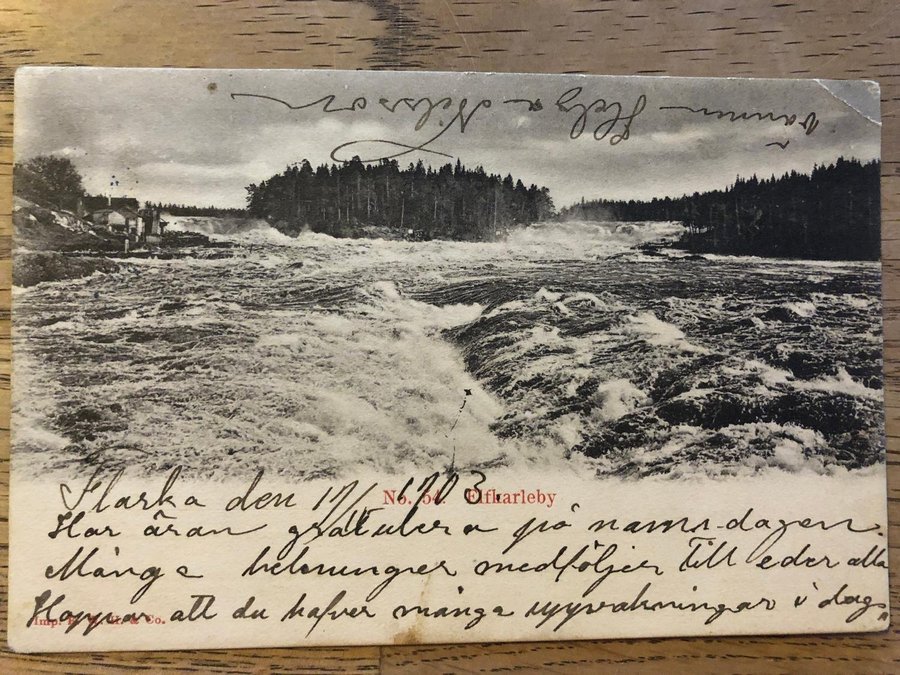 vännen Helga Nilsson
Flarka den 17/1 1903.
No. 54. Elfkarleby
Har äran gratulera på namns-dagen
Många helsningrer medföljer Till eder alla
Hoppas att du hafver många uppvakningar i dag,
Imp. & Co.